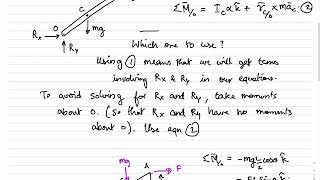 ΣM̄/o = I_c α k̂ + r̄_c/o × m ā_c ②
C
O
R_x
mg
R_y
Which one to use?
Using ① means that we will get terms
involving R_x & R_y in our equations.
To avoid solving for R_x and R_y, take moments
about O. (so that R_x and R_y have no moments
about O). Use eqn ②
mg
A
F
ΣM̄/o = -mg L/2 cosα k̂